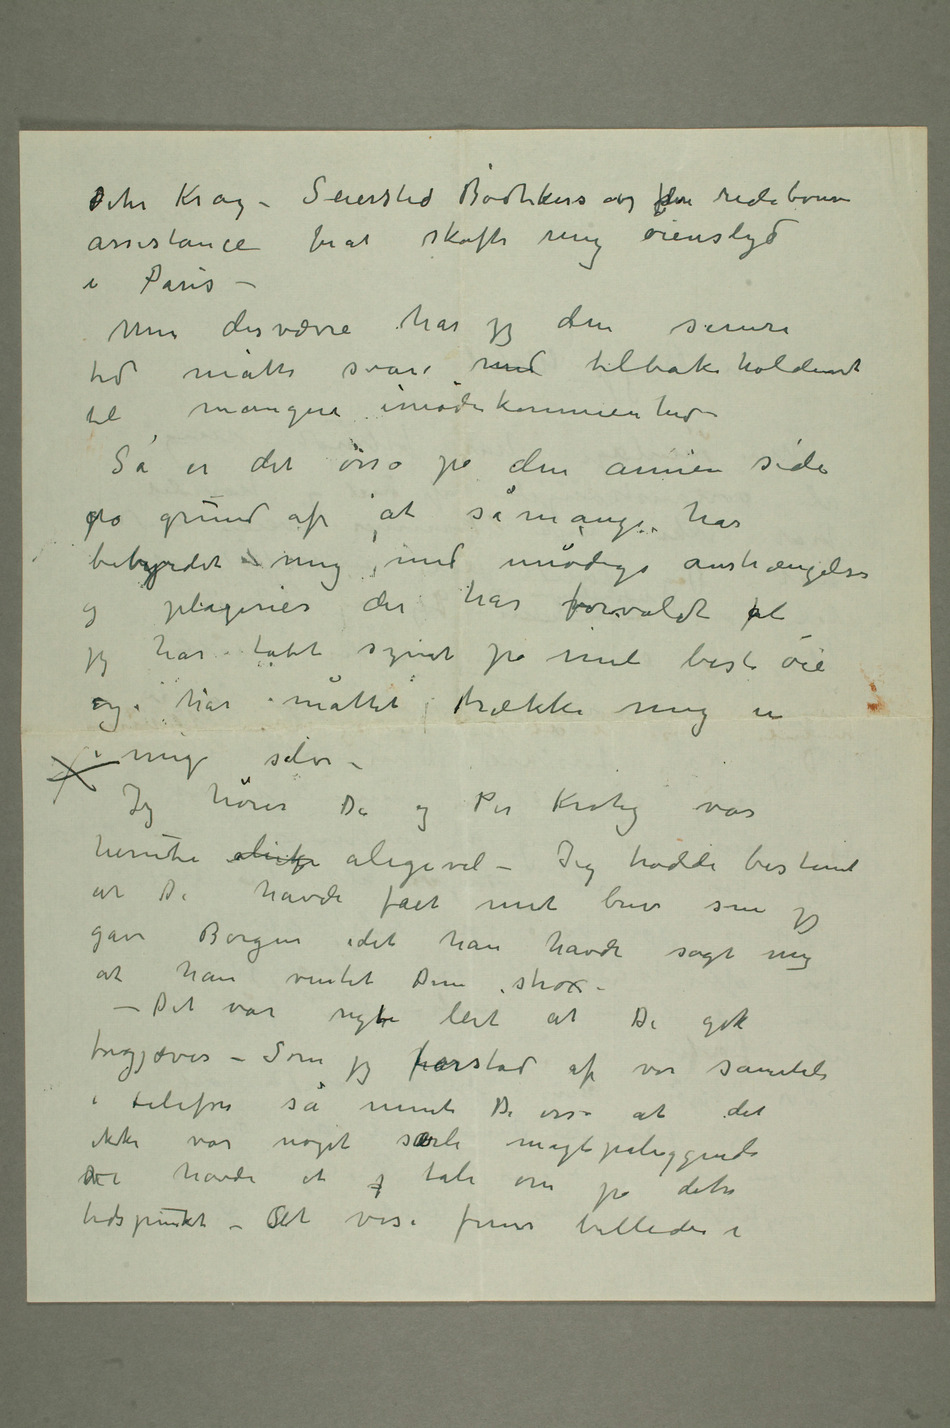 Deres Krag – Seiersted Bødtkers og den redebonne
assistance for at skaffe mig øienslyd
i Paris –
Men desværre har jeg den senere
tid måtte svare med tilbakeholdenhet
til mangen imødekommenhed –
Så er det osså på den annen side
på grund af at så mange har
bebyrdet mig med unødige anstrængelser
og plagerier der har forvoldt at
jeg har tabt synet på mit beste øie
og har måttet trække mig in
i mig selv –
Jeg hører De og Per Krohg var
herute aligevel – Jeg trodde bestemt
at De havde fået mit brev som jeg
gav Borgen idet han havde sagt mig
at han ventet Dem strax –
– Det var rigtig leit at De gik
forgjæves – Som jeg forstod af vor samtale
i telefon så mente De osså at det
ikke var noget særli magtpåliggende
vi havde at tale om på dette
tidspunkt – At vise frem billeder i